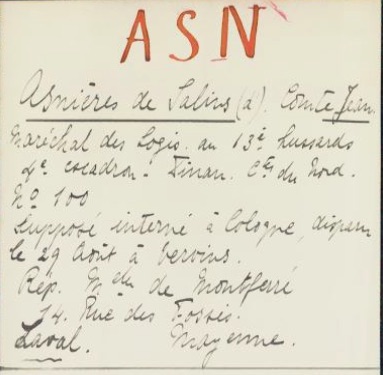 ASN
Asnières de Salins (d'). Comte Jean
Maréchal des Logis. au 13e hussards
4e escadron - Dinan. Ctes du Nord.
No 100
Supposé interné à Cologne, disparu
le 29 Août à Vervins.
Rép. Mme de Montferré
14. Rue des Fossés.
Laval. Mayenne.